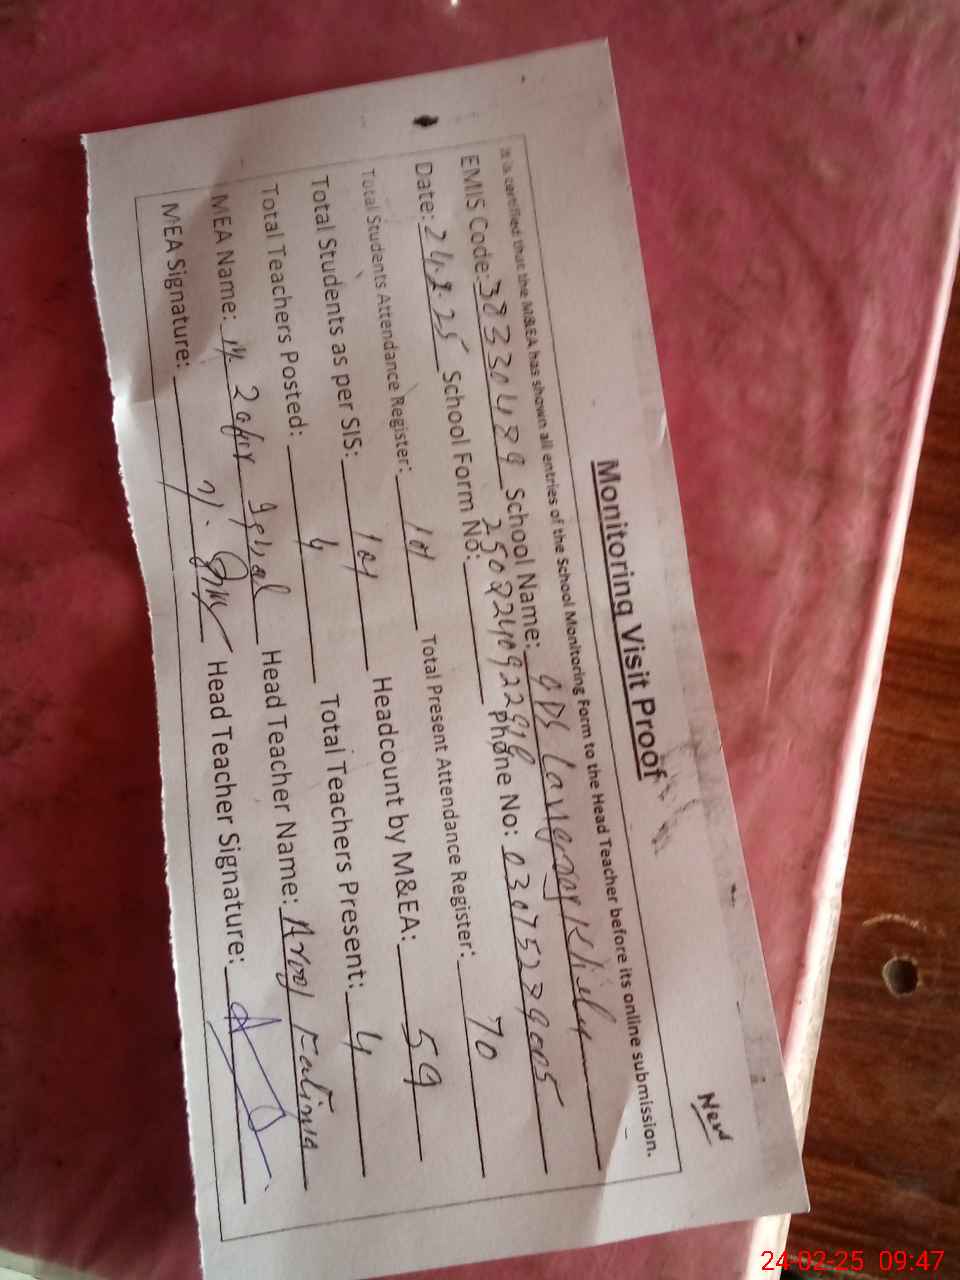 New
Monitoring Visit Proof
It is certified that the M&EA has shown all entries of the School Monitoring Form to the Head Teacher before its online submission.
EMIS Code: 38330489 School Name: GPS
Date: 24.2.25 School Form No: Phone No: 03075339005
Total Students Attendance Register: 101 Total Present Attendance Register: 70
Total Students as per SIS: 101 Headcount by M&EA: 59
Total Teachers Posted: 4 Total Teachers Present: 4
MEA Name: M. Zafar Iqbal Head Teacher Name: Arooj Fatima
MEA Signature: Head Teacher Signature:
24-02-25 09:47